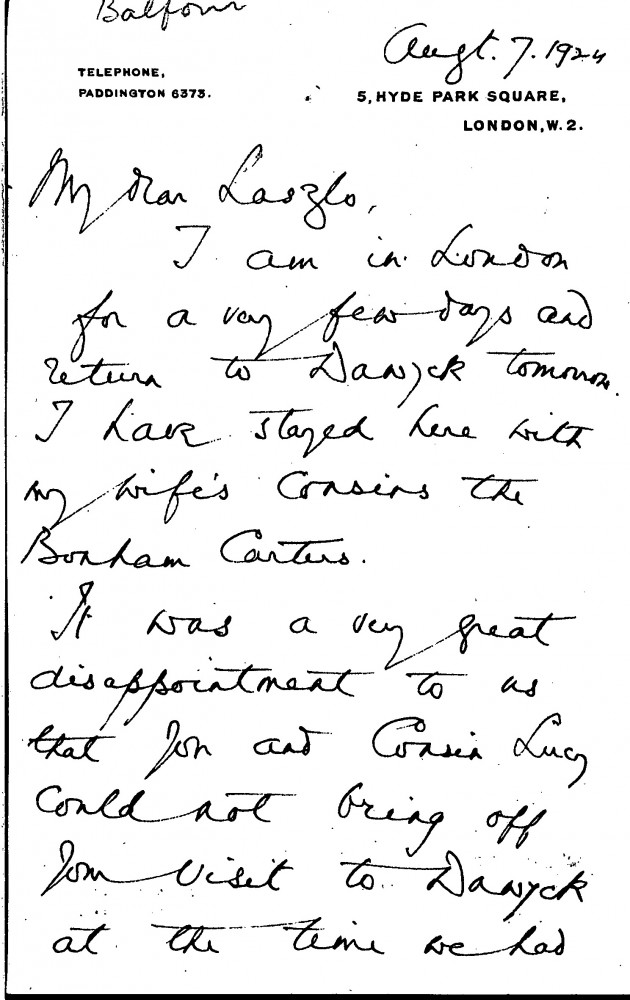 Balfour
Augt. 7. 1924
TELEPHONE,
PADDINGTON 6373.
5, HYDE PARK SQUARE,
LONDON, W. 2.
My dear Laszlo,
I am in London
for a very few days and
return to Dawyck tomorrow.
I have stayed here with
my wife's Cousins the
Bonham Carters.
It was a very great
disappointment to us
that you and Cousin Lucy
could not bring off
your visit to Dawyck
at the time we had